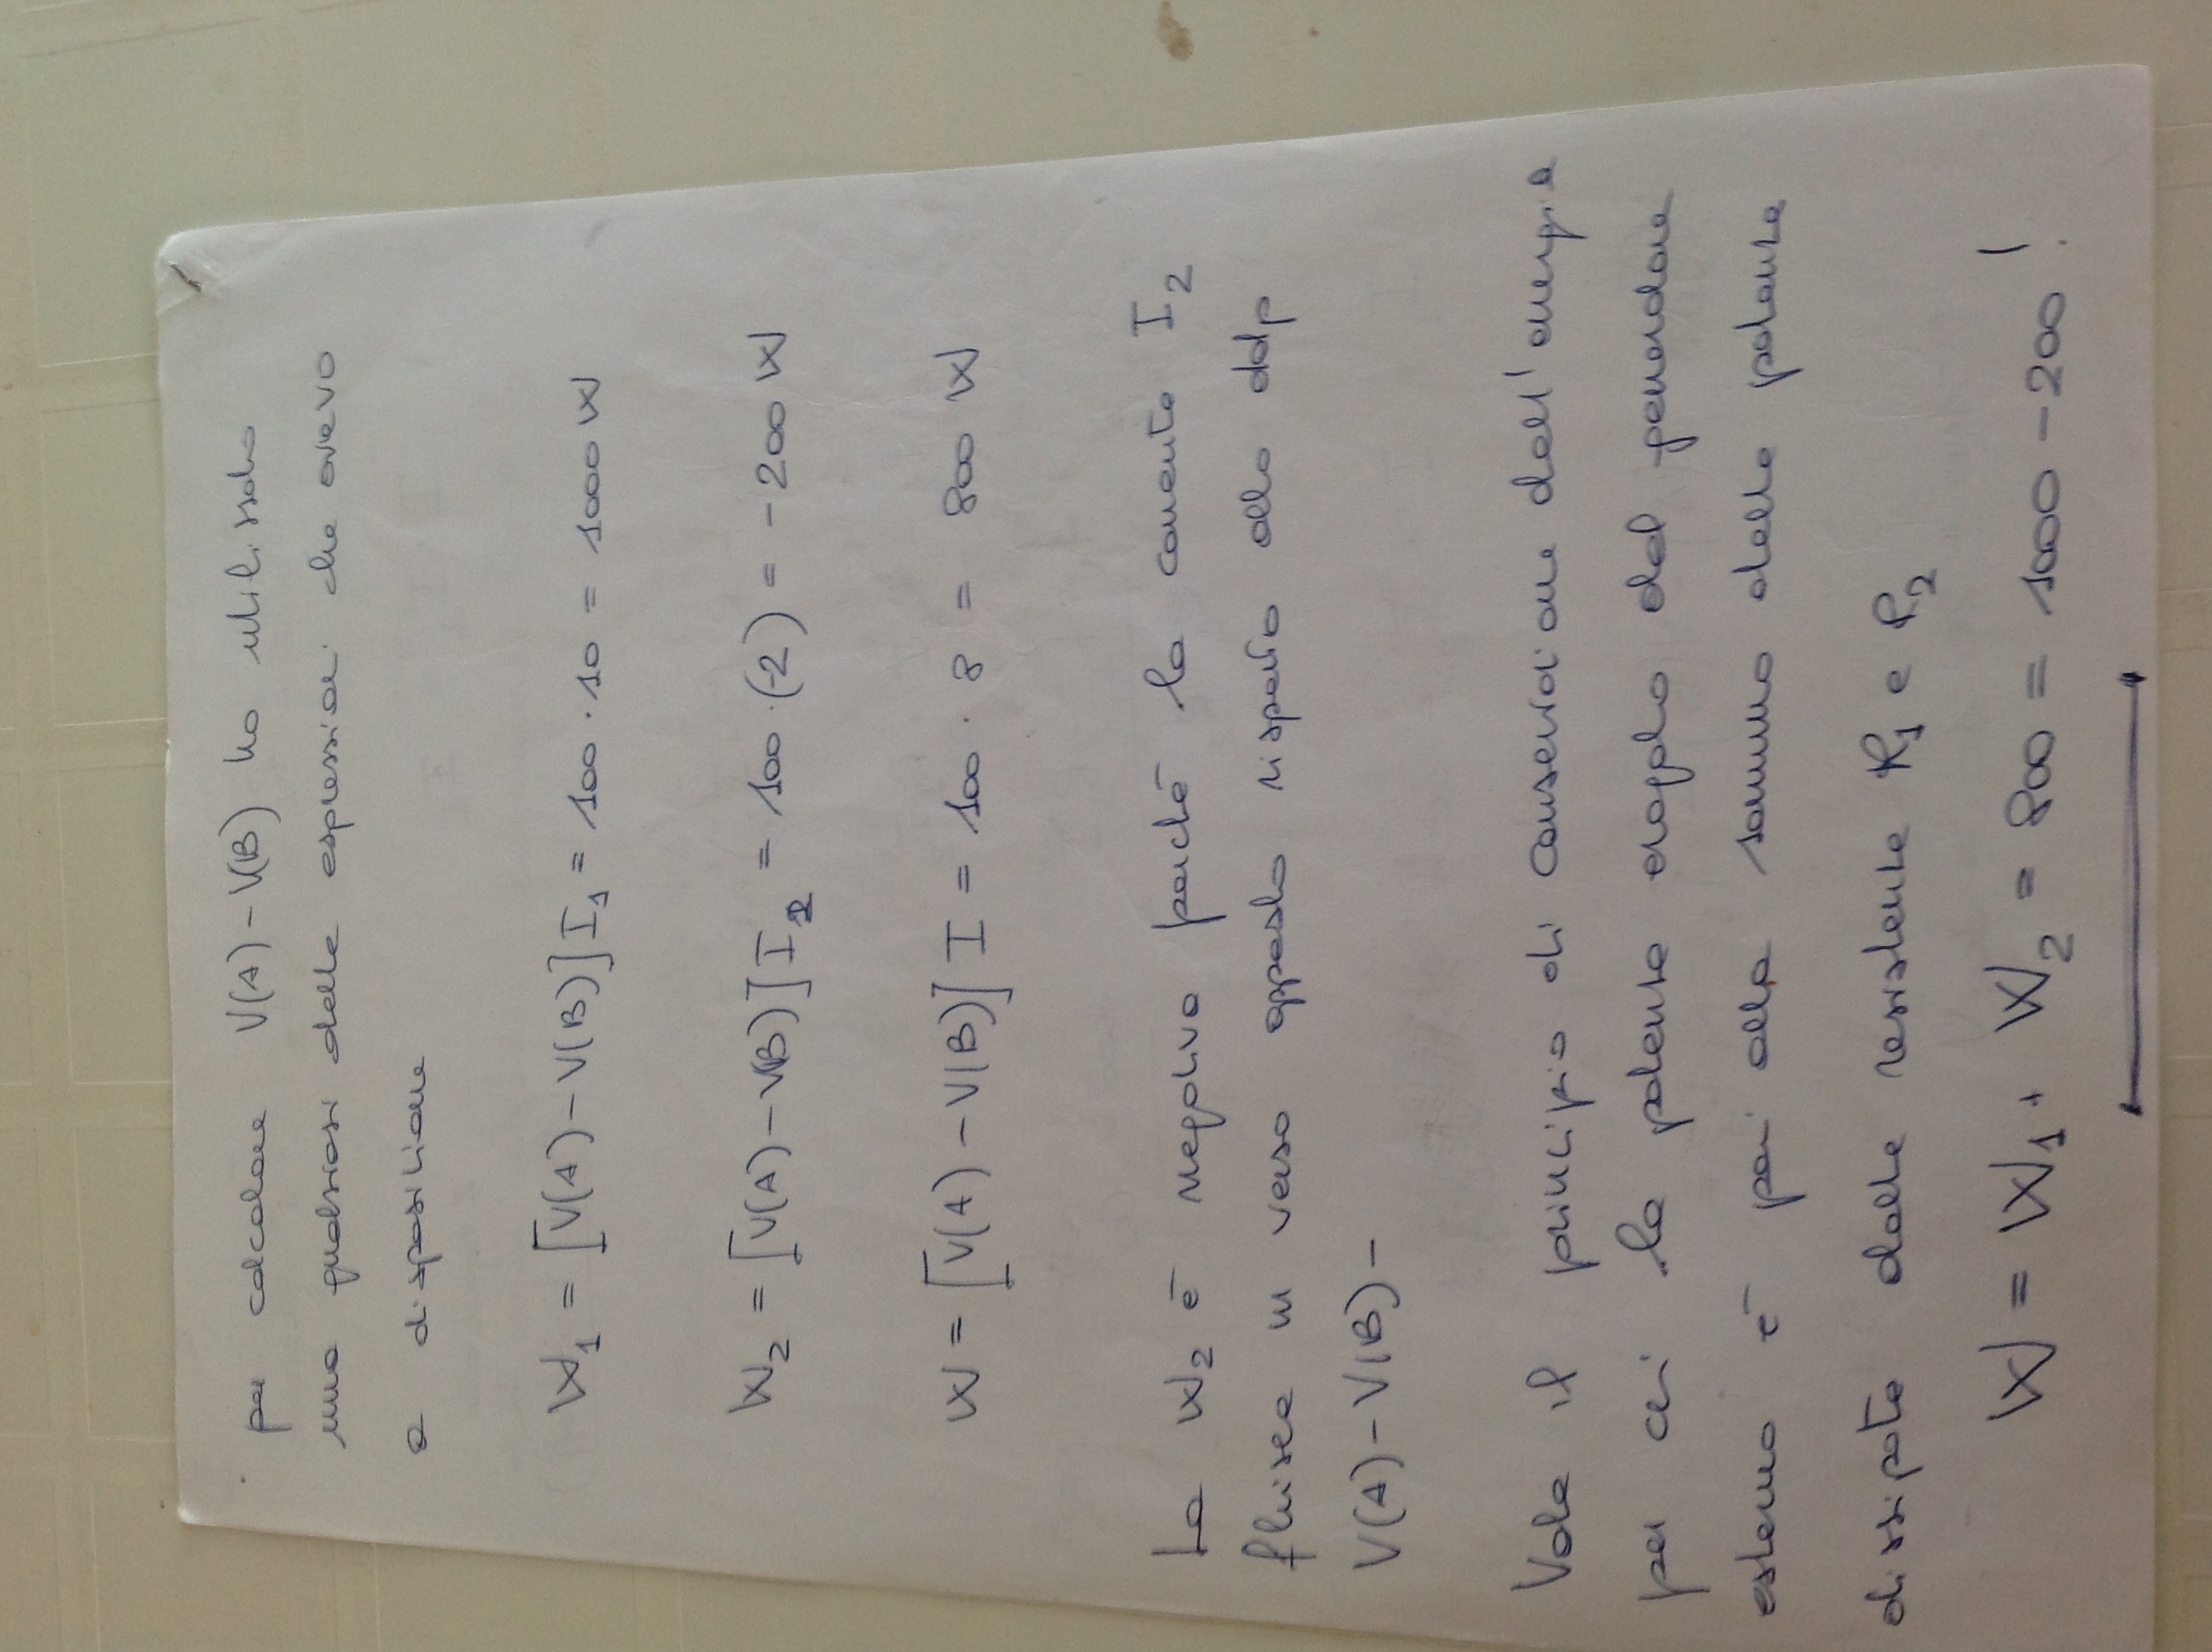 per calcolare V(A)-V(B) ho utilizzato
una qualsiasi delle espressioni che avevo
a disposizione
W₁ = [V(A)-V(B)] I₁ = 100 · 10 = 1000 W
W₂ = [V(A)-V(B)] I₂ = 100 · (-2) = -200 W
W = [V(A)-V(B)] I = 100 · 8 = 800 W
La W₂ è negativa perché la corrente I₂
fluisce in verso opposto rispetto alla ddp
V(A)-V(B)-
Vale il principio di conservazione dell'energia
per cui la potenza erogata dal generatore
esterno è pari alla somma delle potenze
dissipate dalle resistenze R₁ e R₂
W = W₁ + W₂ = 800 = 1000 - 200 !